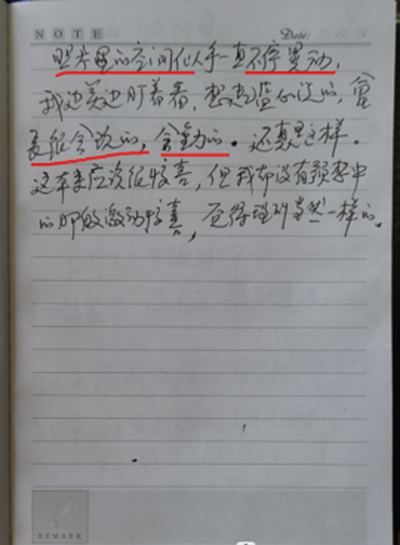 NOTE Date:
照片里的空间化人手一直不停晃动,
我边笑边盯着看,想起 说的,会
会 的,会动的。还真是这样。
这本来应该很惊喜,但我却没有预想中
的那般激动惊喜,觉得理所当然一样的。
REMARK